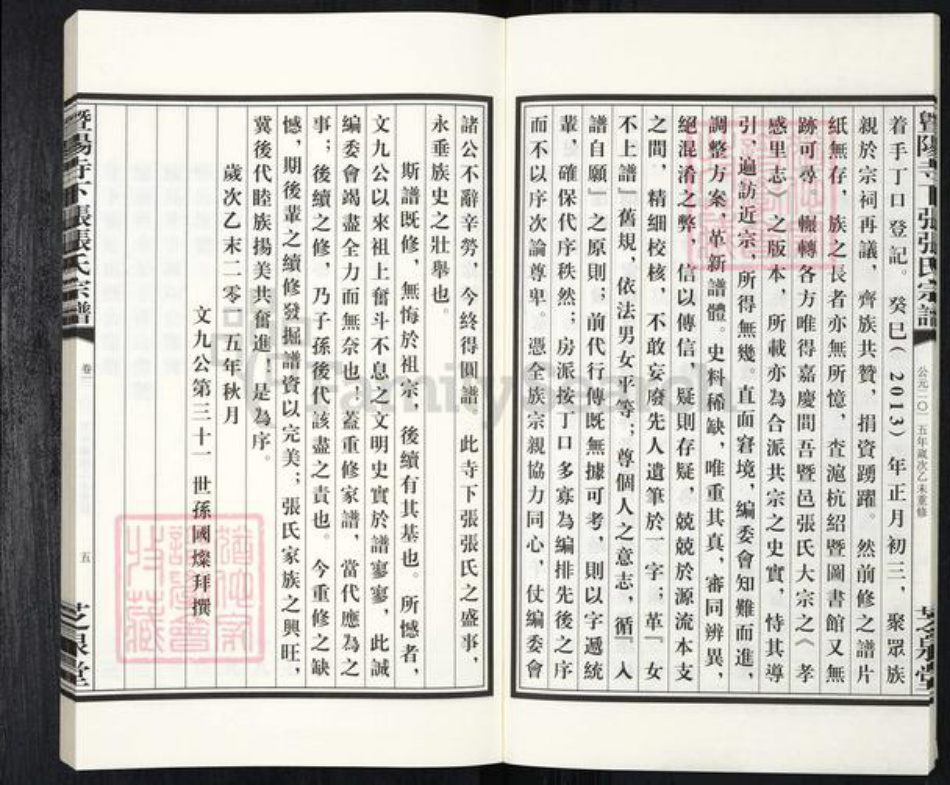 暨陽寺下張張氏宗譜
公元二〇一五年歲次乙未重修
芝泉堂
着手丁口登記。癸巳(2013)年正月初三,聚眾族
親於宗祠再議,齊族共贊,捐資踴躍。然前修之譜片
紙無存,族之長者亦無所憶,查滬杭紹暨圖書館又無
跡可尋,輾轉各方唯得嘉慶間吾暨邑張氏大宗之《孝
感里志》之版本,所載亦為合派共宗之史實,恃其導
引,遍訪近宗,所得無幾。直面窘境,編委會知難而進,
調整方案,革新譜體。史料稀缺,唯重其真,審同辨異,
絕混淆之弊,信以傳信,疑則存疑,兢兢於源流本支
之間,精細校核,不敢妄廢先人遺筆於一字;革『女
不上譜』舊規,依法男女平等;尊個人之意志,循『入
譜自願』之原則;前代行傳既無據可考,則以字遞統
輩,確保代序秩然;房派按丁口多寡為編排先後之序
而不以序次論尊卑。憑全族宗親協力同心,仗編委會
諸公不辭辛勞,今終得圓譜。此寺下張張氏之盛事,
永垂族史之壯舉也。
斯譜既修,無悔於祖宗,後續有其基也。所憾者,
文九公以來祖上奮斗不息之文明史實於譜寥寥,此誠
編委會竭盡全力而無奈也,蓋重修家譜,當代應為之
事;後續之修,乃子孫後代該盡之責也。今重修之缺
憾,期後輩之續修發掘譜資以完美;張氏家族之興旺,
冀後代睦族揚美共奮進!是為序。
歲次乙未二零一五年秋月
文九公第三十一世孫國燦拜撰
暨陽寺下張張氏宗譜
卷一
五
芝泉堂
FamilySearch